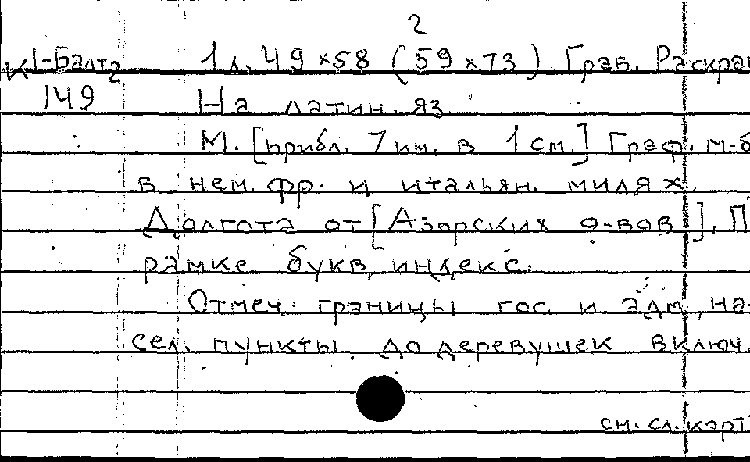 2
К 1-Балт 2 1 л. 49×58 (59×73) Грав. Раскраш
149 На латин. яз.
М. [прибл. 7 км. в 1 см.] Граф. м-б
в нем. фр. и итальян. милях.
Долгота от [Азорских о-вов]. П
рамке букв. индекс.
Отмеч. границы гос. и адм., на-
сел. пункты до деревушек включ.
см. сл. карт